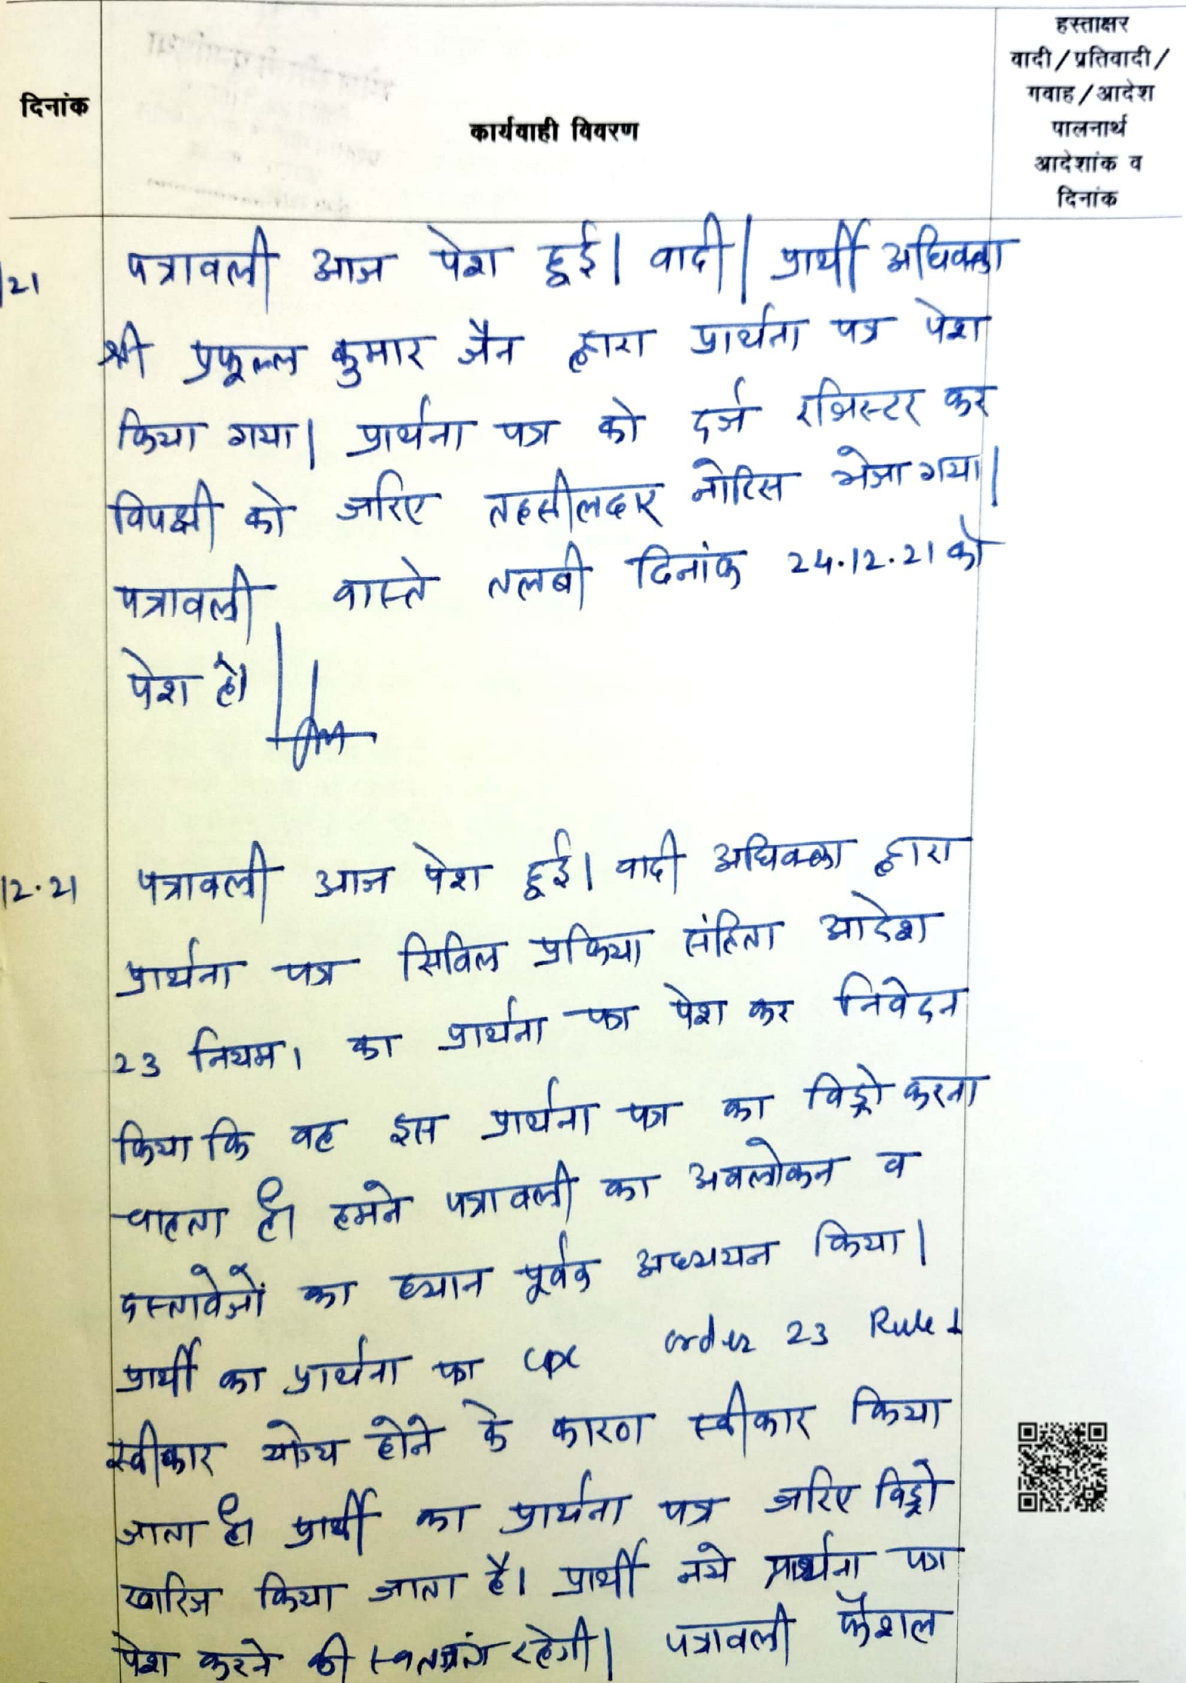 दिनांक
कार्यवाही विवरण
हस्ताक्षर
वादी/प्रतिवादी/
गवाह/आदेश
पालनार्थ
आदेशांक व
दिनांक
21 पत्रावली आज पेश हुई। वादी/प्रार्थी अधिवक्ता
श्री प्रफूल्ल कुमार जैन द्वारा प्रार्थना पत्र पेश
किया गया। प्रार्थना पत्र को दर्ज रजिस्टर कर
विपक्षी को जरिए तहसीलदार नोटिस भेजा गया।
पत्रावली वास्ते तलबी दिनांक 24.12.21 को
पेश हो।
12.21 पत्रावली आज पेश हुई। वादी अधिवक्ता द्वारा
प्रार्थना पत्र सिविल प्रक्रिया संहिता आदेश
23 नियम 1 का प्रार्थना पत्र पेश कर निवेदन
किया कि वह इस प्रार्थना पत्र का विड्रो करना
चाहता है। हमने पत्रावली का अवलोकन व
दस्तावेजों का ध्यान पूर्वक अध्ययन किया।
प्रार्थी का प्रार्थना पत्र CPC order 23 Rule 1
स्वीकार योग्य होने के कारण स्वीकार किया
जाता है। प्रार्थी का प्रार्थना पत्र जरिए विड्रो
खारिज किया जाता है। प्रार्थी नये प्रार्थना पत्र
पेश करने की स्वतंत्रता रहेगी। पत्रावली फैशल